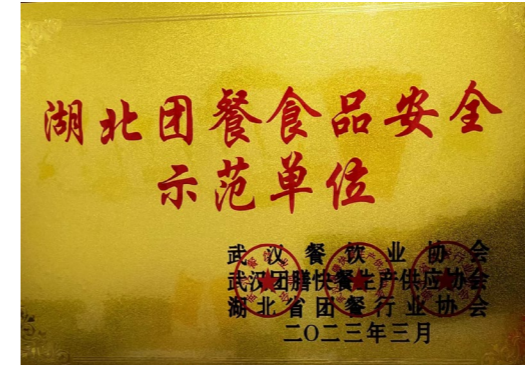 湖北团餐食品安全
示范单位
武汉餐饮业协会
武汉团膳快餐生产供应协会
湖北省团餐行业协会
二〇二三年三月